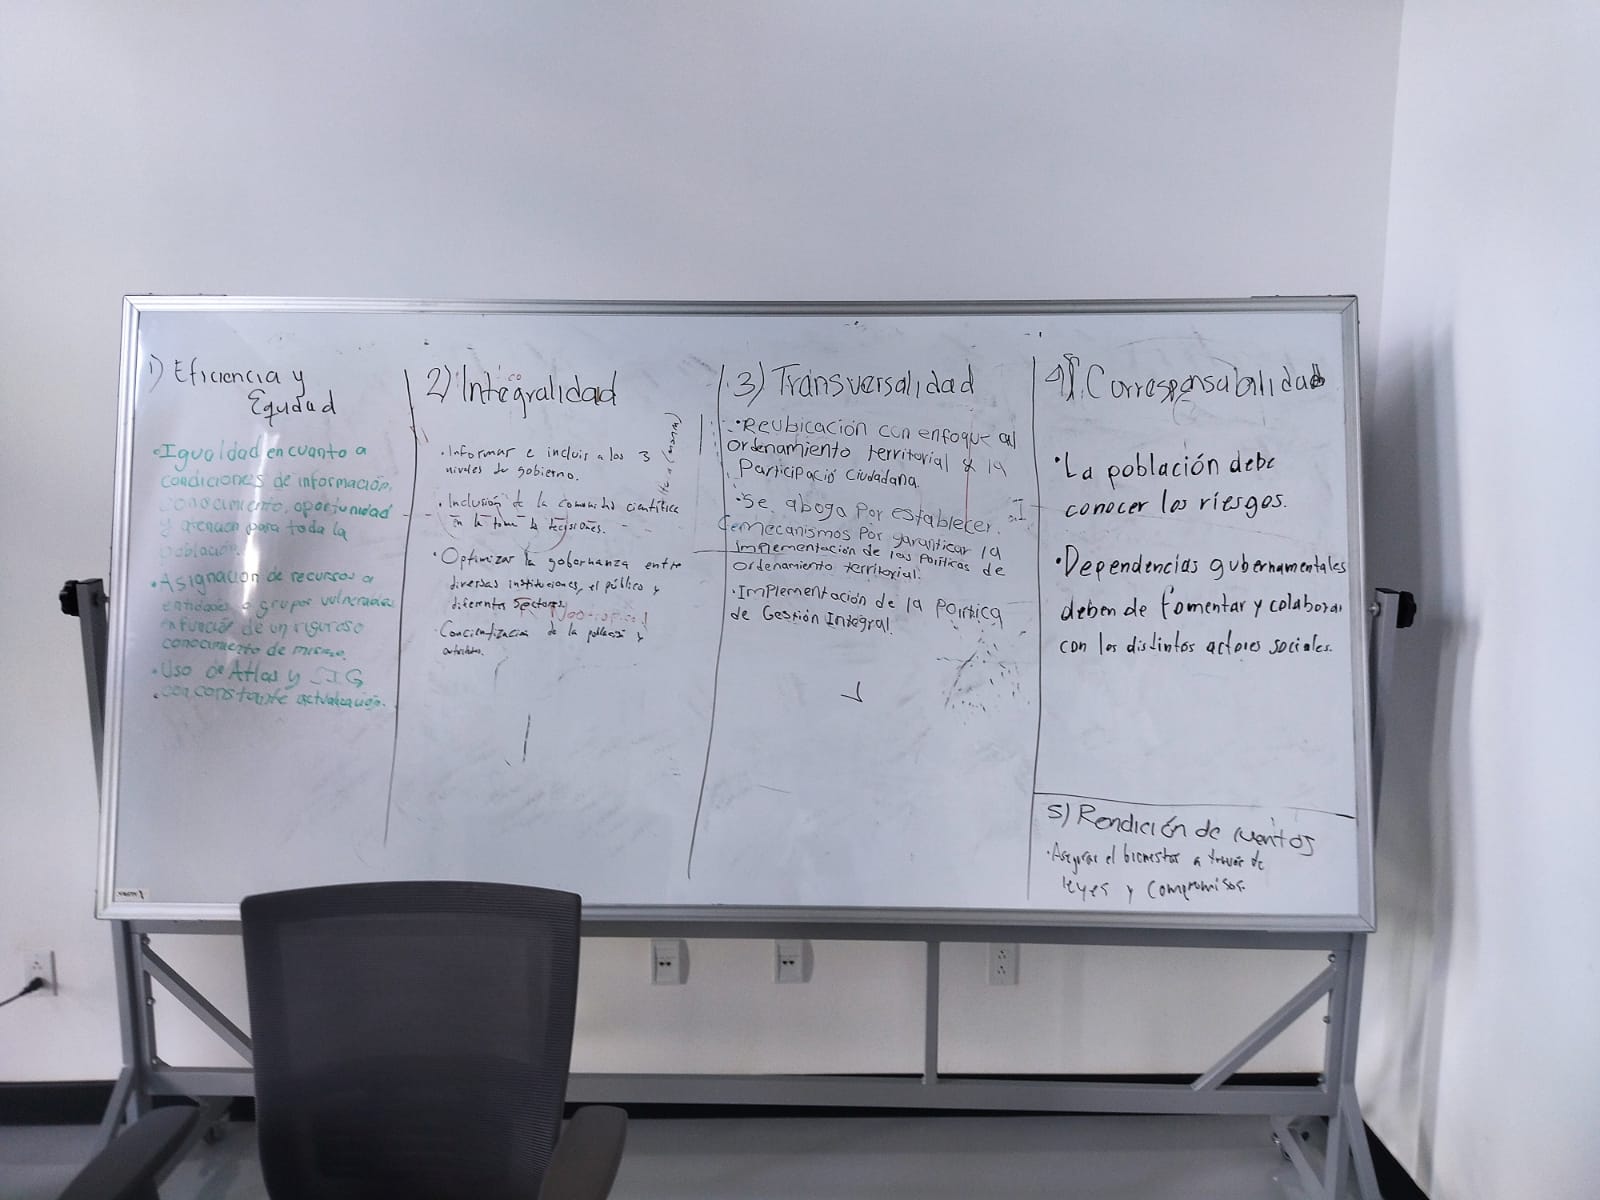 1) Eficiencia y
Equidad
• Igualdad en cuanto a
condiciones de información,
conocimiento, oportunidad
y atención para toda la
población.
• Asignación de recursos a
entidades o grupos vulnerables
en función de un riguroso
conocimiento de mismo.
• Uso de Atlas y SIG
con constante actualización.
2) Integralidad
• Informar e incluir a los 3
niveles de gobierno.
• Inclusión de la comunidad científica
en la toma de decisiones.
• Optimizar la gobernanza entre
diversas instituciones, el público y
diferentes sectores.
• Concientización de la población y
autoridades.
3) Transversalidad
• Reubicación con enfoque al
ordenamiento territorial & la
Participació ciudadana.
• Se aboga por establecer
mecanismos por garantizar la
implementación de las políticas de
ordenamiento territorial.
• Implementación de la política
de Gestión Integral.
4) Corresponsabilidad
• La población debe
conocer los riesgos.
• Dependencias gubernamentales
deben de fomentar y colaborar
con los distintos actores sociales.
5) Rendición de cuentas
• Asegurar el bienestar a través de
leyes y compromisos.